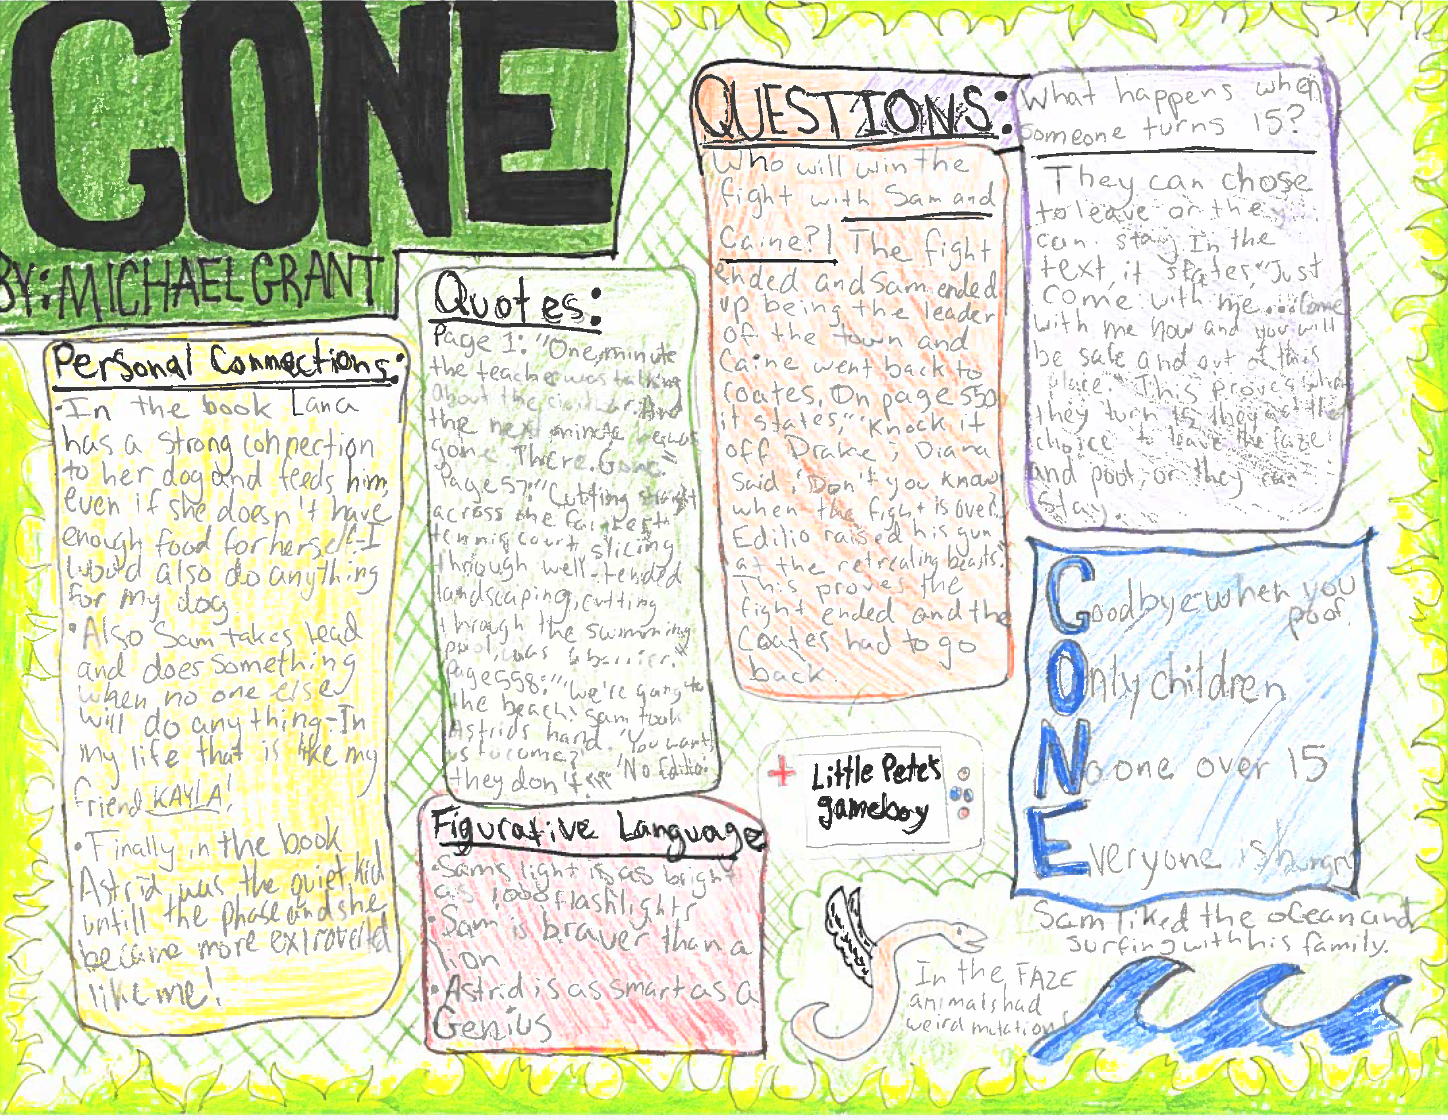 GONE
BY: MICHAEL GRANT
Personal Connections:
•In the book Lana
has a strong connection
to her dog and feeds him,
even if she doesn't have
enough food for herself-I
would also do anything
for my dog
•Also Sam takes lead
and does something
when no one else
will do anything-In
my life that is like my
friend KAYLA!
•Finally in the book
Astrid was the quiet kid
untill the phase and she
became more extroverted
like me!
Quotes:
Page 1: "One minute
the teacher was talking
about the civil war. And
the next minute he was
gone There. Gone."
Page 57: "Cutting straight
across the farthest
tennis court, slicing
through well-tended
landscaping, cutting
through the swimming
pool, was a barrier."
Page 558: "'We're going to
the beach,' Sam took
Astrids hand. 'You want
us to come?' 'No Edilio.
they don't.'"
Figurative Language
•Sams light is as bright
as 1,000 flashlights
•Sam is braver than a
lion
•Astrid is as smart as a
Genius
QUESTIONS:
Who will win the
fight with Sam and
Caine?| The fight
ended and Sam ended
up being the leader
of the town and
Caine went back to
Coates. On page 550
it states, "'Knock it
off Drake', Diana
Said, 'Don't you know
when the fight is over?'
Edilio raised his gun
at the retreating beasts."
This proves the
fight ended and the
Coates had to go
back.
What happens when
someone turns 15?
They can chose
to leave or they
can stay In the
text, it states, "Just
come with me....Come
with me now and you will
be safe and out of this
place." This proves when
they turn 15 they get the
choice to leave the faze
and poof, or they can
Stay.
Goodbye when you
poof.
Only children
No one over 15
Everyone is hungry
Little Pete's
gameboy
In the FAZE
animals had
weird mutations
Sam liked the ocean and
surfing with his family.